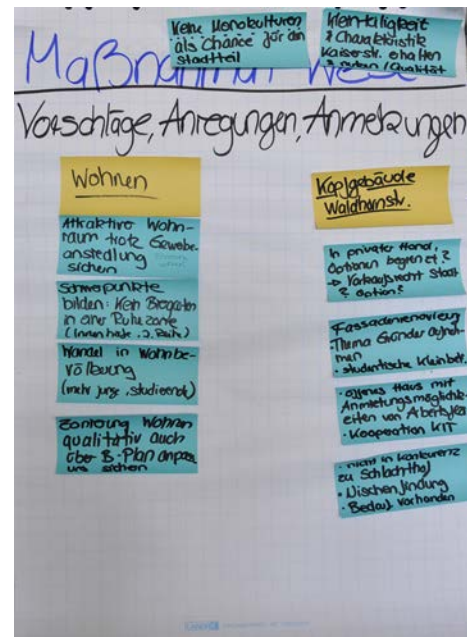 Keine Monokulturen
als Chance für den
Stadtteil
Kleinteiligkeit
& Charakteristik
Kaiserstr. erhalten
Qualität
Maßnahmen West
Vorschläge, Anregungen, Anmerkungen
Wohnen
Attraktive Wohn-
raum trotz Gewerbe-
ansiedlung
sichern
Schwerpunkte
bilden: Kein Biergarten
in einer Ruhezone
(Innenhöfe, 2. Reihe)
Wandel in Wohnbe-
völkerung
(mehr junge, studierende)
Zonierung Wohnen
qualitativ auch
über B-Plan anpass
uns sichern
Kopfgebäude
Waldhornstr.
In privater Hand,
Optionen begrenzt?
→ Vorkaufsrecht Stadt
? Option?
Fassadenrenovierung
Thema Gründer aufneh-
men
· studentische Kleinbet.
· offenes Haus mit
Anmietungsmöglichk-
eiten von Arbeitsplätz
· Kooperation KIT
· nicht in Konkurrenz
zu Schlachthof
· Nischenfindung
· Bedarf vorhanden